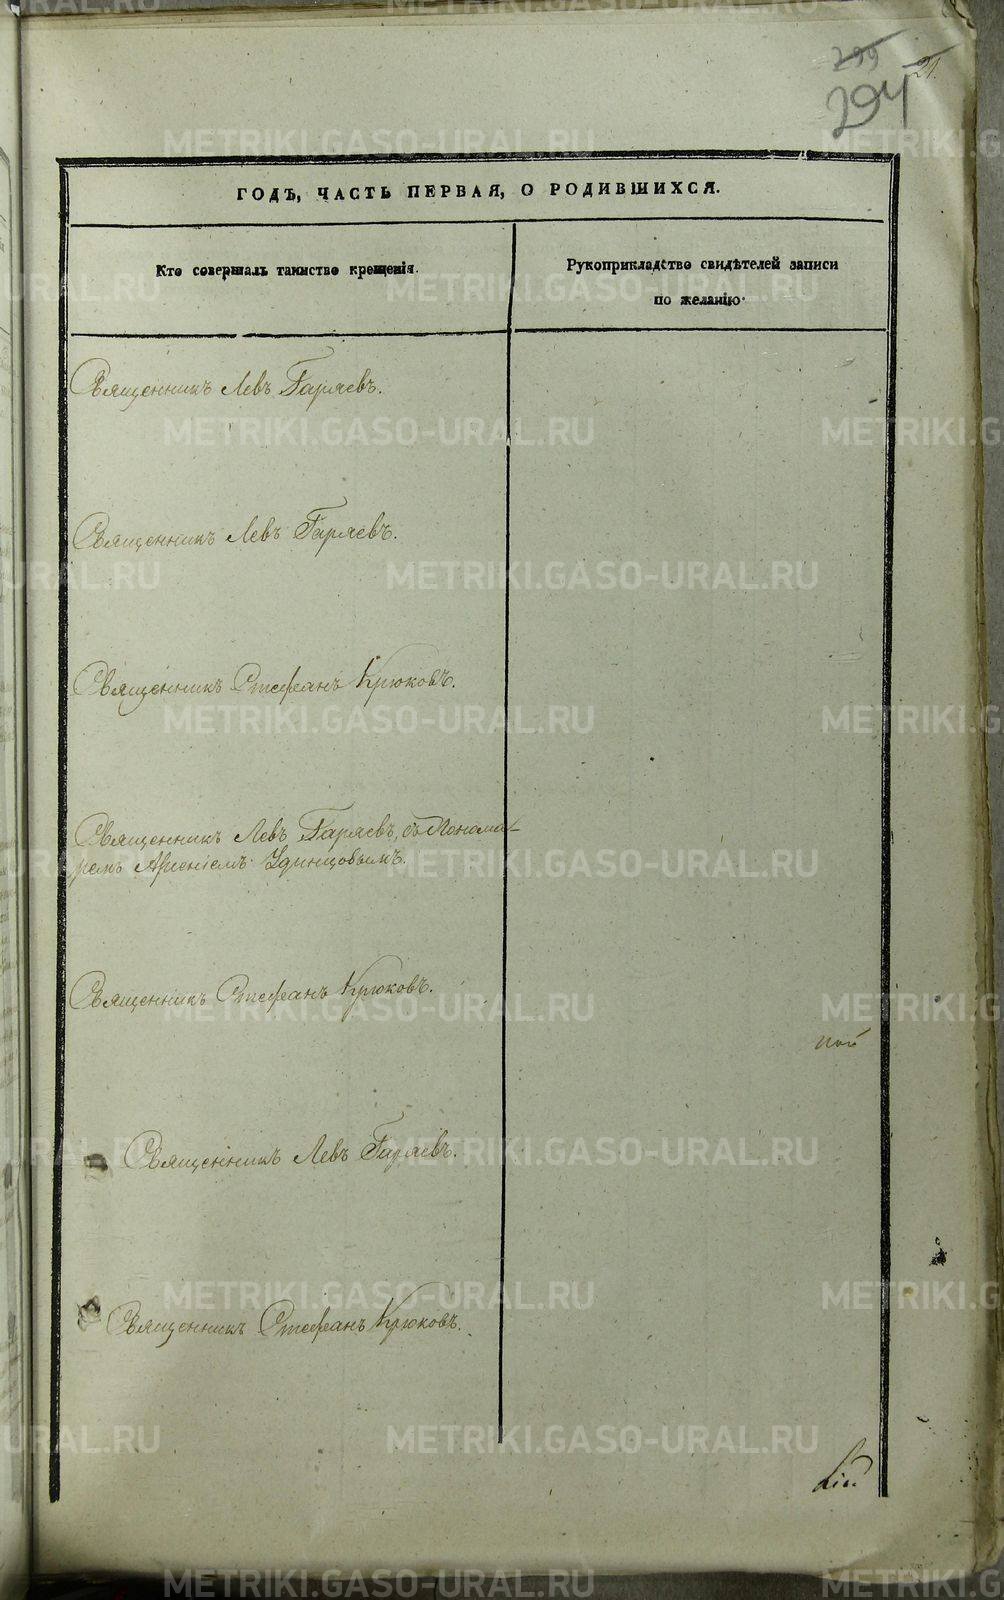 299
21.
294
ГОДЪ, ЧАСТЬ ПЕРВАЯ, О РОДИВШИХСЯ.
Кто совершалъ таинство крещенія.
Рукоприкладство свидѣтелей записи
по желанію.
Священникъ Левъ Гаряевъ.
Священникъ Левъ Гаряевъ.
Священникъ Стефанъ Крюковъ.
Священникъ Левъ Гаряевъ, съ Понома-
ремъ Арсеніемъ Удинцовымъ.
Священникъ Стефанъ Крюковъ.
Священникъ Левъ Гаряевъ.
Священникъ Стефанъ Крюковъ.
METRIKI.GASO-URAL.RU